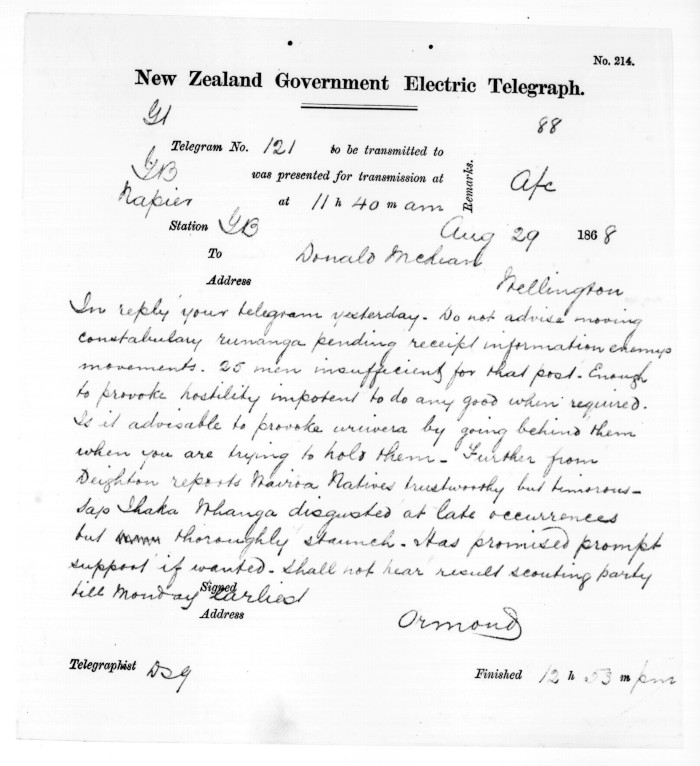 No. 214.
New Zealand Government Electric Telegraph.
88
Telegram No. 121 to be transmitted to
GB was presented for transmission at
Napier at 11 h 40 m am
Remarks.
Station GB Aug 29 1868
To Donald McLean
Address Wellington
In reply your telegram yesterday. Do not advise moving
constabulary runanga pending receipt information enemys
movements. 25 men insufficient for that post. Enough
to provoke hostility impotent to do any good when required.
Is it advisable to provoke urivera by going behind them
when you are trying to hold them - Further from
Deighton reports Wairoa Natives trustworthy but timorous -
says Ihaka Whanga disgusted at late occurrences
but thoroughly staunch. Has promised prompt
support if wanted. Shall not hear result scouting party
till Monday earliest
Signed
Address Ormond
Telegraphist Finished 12 h 53 m pm